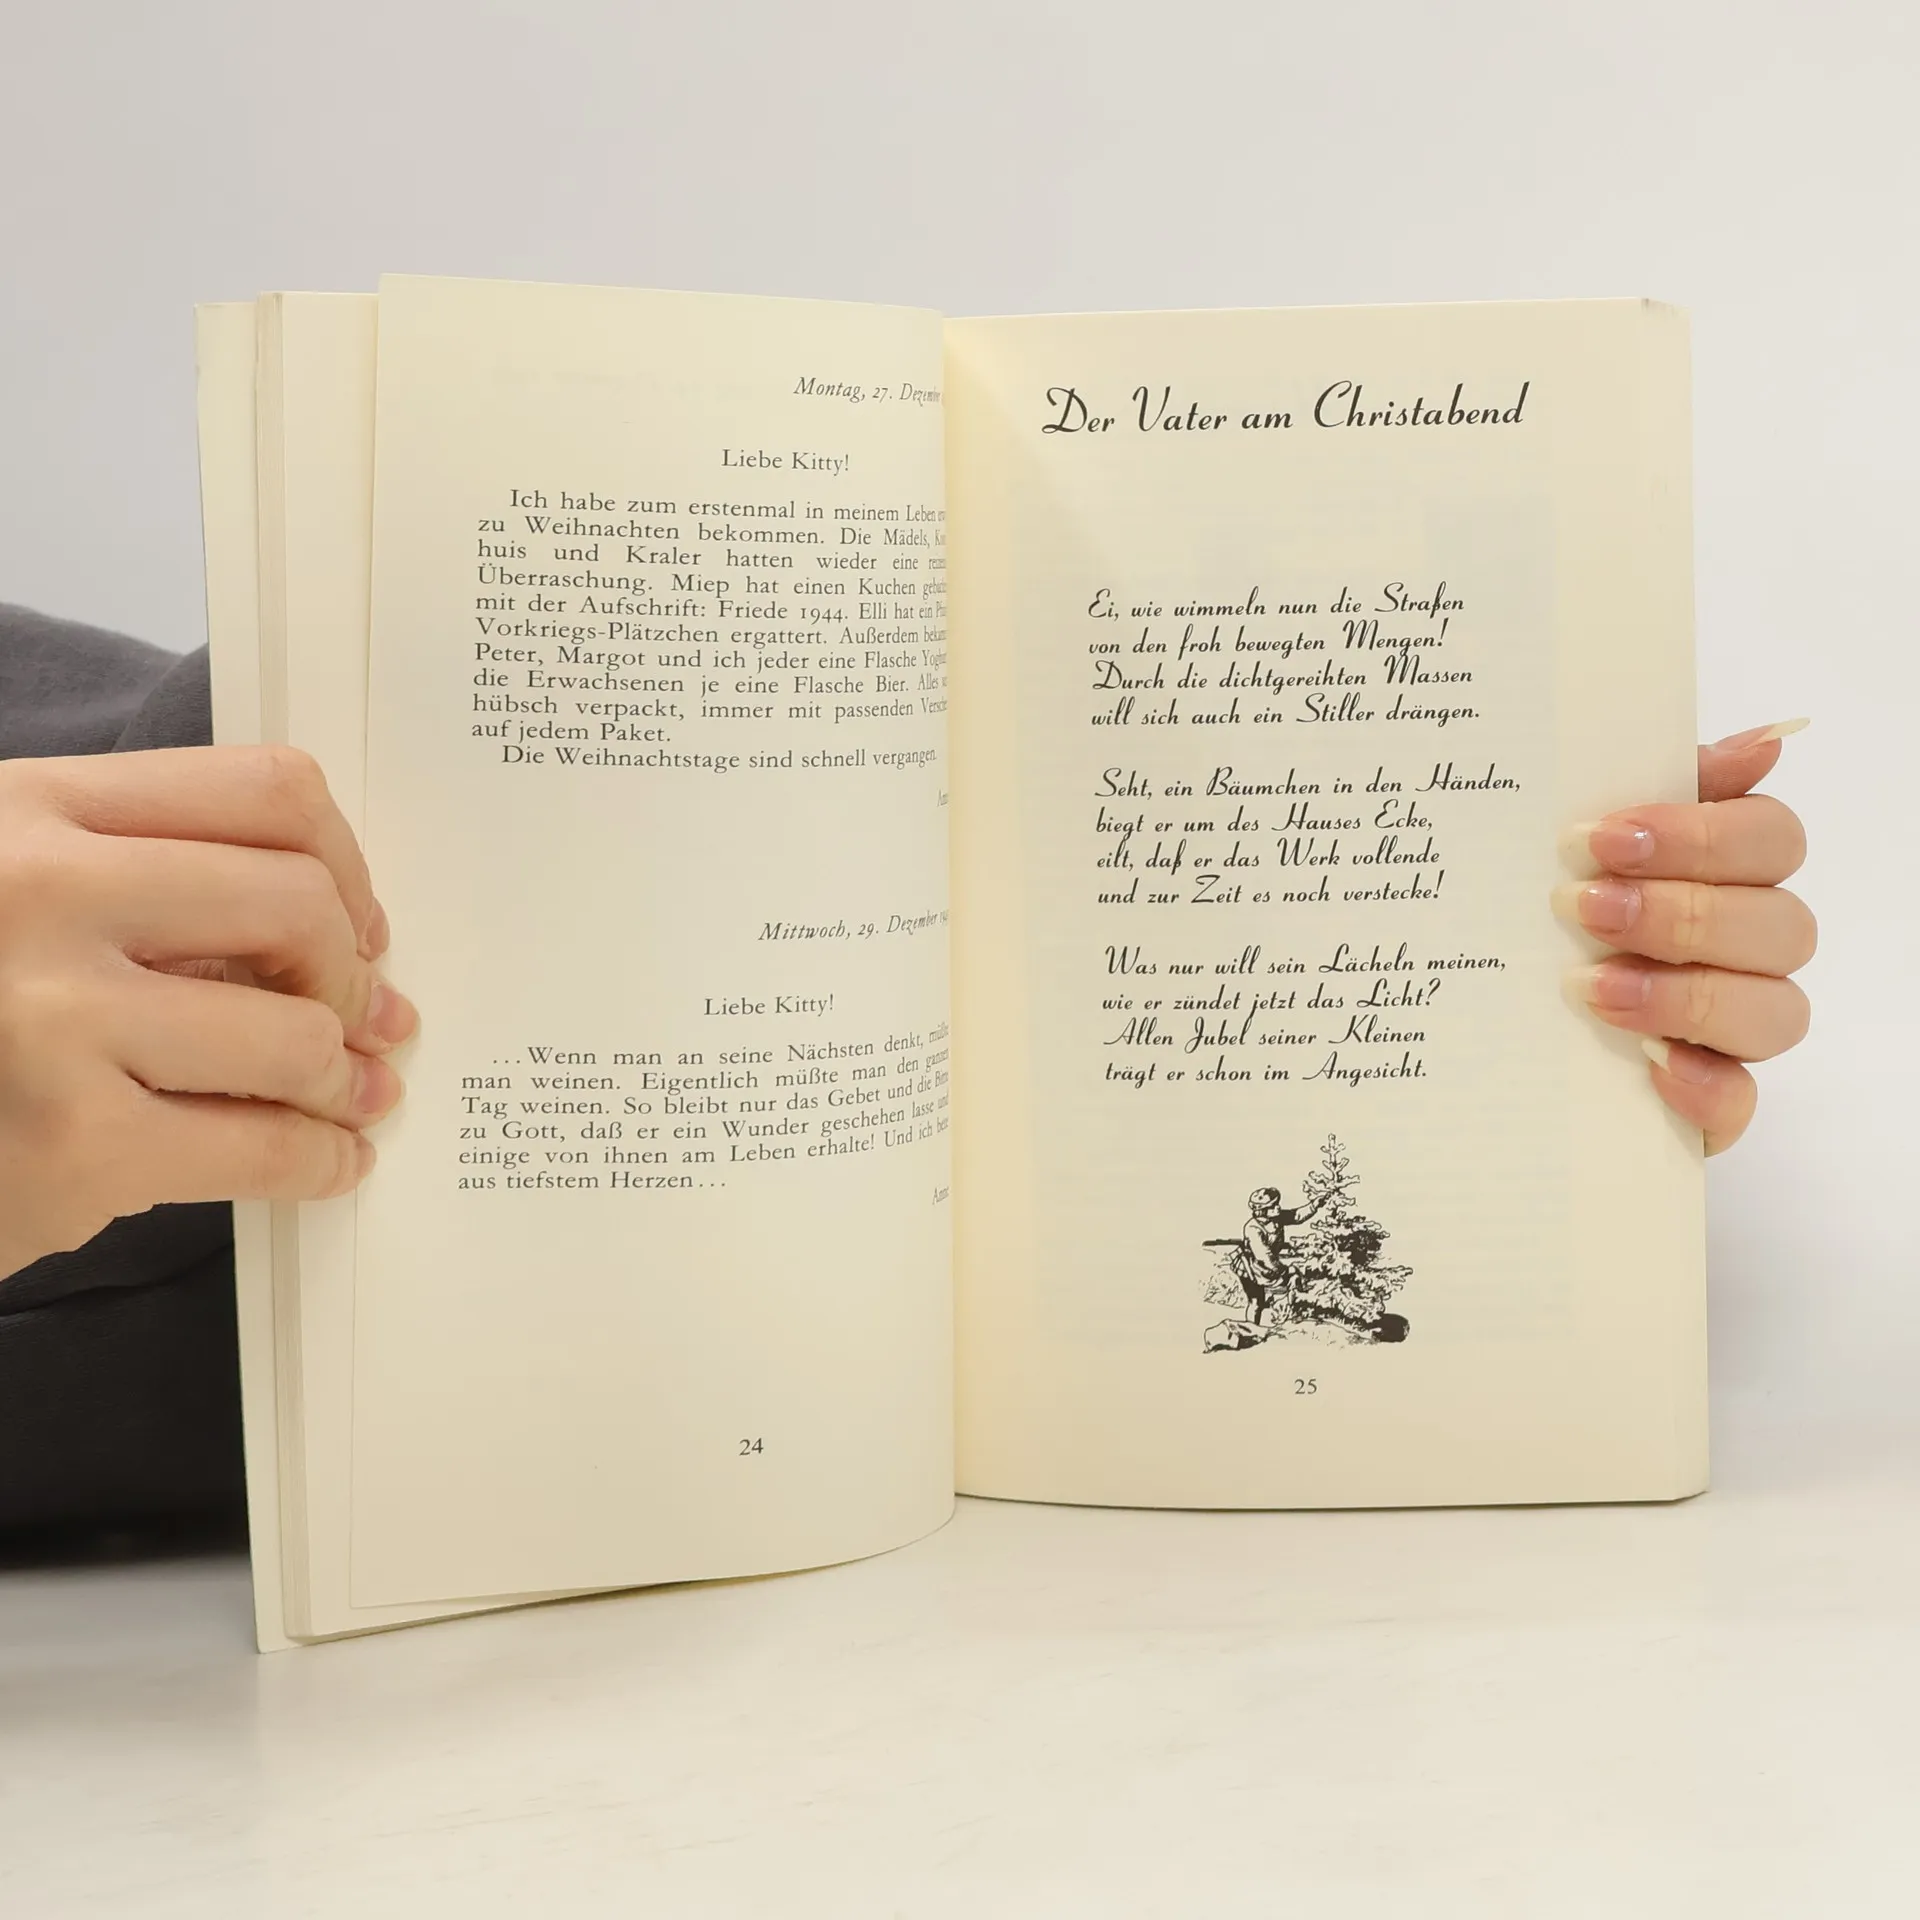 Montag, 27. Dezember
Liebe Kitty!
Ich habe zum erstenmal in meinem Leben
zu Weihnachten bekommen. Die Mädels,
huis und Kraler hatten wieder eine
Überraschung. Miep hat einen Kuchen
mit der Aufschrift: Friede 1944. Elli hat ein
Vorkriegs-Plätzchen ergattert. Außerdem
Peter, Margot und ich jeder eine Flasche
die Erwachsenen je eine Flasche Bier. Alles
hübsch verpackt, immer mit passenden
auf jedem Paket.
Die Weihnachtstage sind schnell vergangen.
Mittwoch, 29. Dezember
Liebe Kitty!
...Wenn man an seine Nächsten denkt, müßte
man weinen. Eigentlich müßte man den ganzen
Tag weinen. So bleibt nur das Gebet und die
zu Gott, daß er ein Wunder geschehen lasse und
einige von ihnen am Leben erhalte! Und ich
aus tiefstem Herzen...
24
Der Vater am Christabend
Ei, wie wimmeln nun die Straßen
von den froh bewegten Mengen!
Durch die dichtgereihten Massen
will sich auch ein Stiller drängen.
Seht, ein Bäumchen in den Händen,
biegt er um des Hauses Ecke,
eilt, daß er das Werk vollende
und zur Zeit es noch verstecke!
Was nur will sein Lächeln meinen,
wie er zündet jetzt das Licht?
Allen Jubel seiner Kleinen
trägt er schon im Angesicht.
25